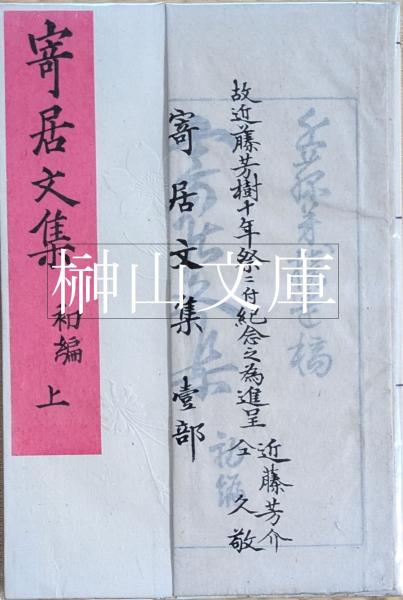 故近藤芳樹十年祭ニ付紀念之為進呈
近藤芳介
仝久敬
寄居文集 壹部
寄居文集 初編 上
榊山文庫